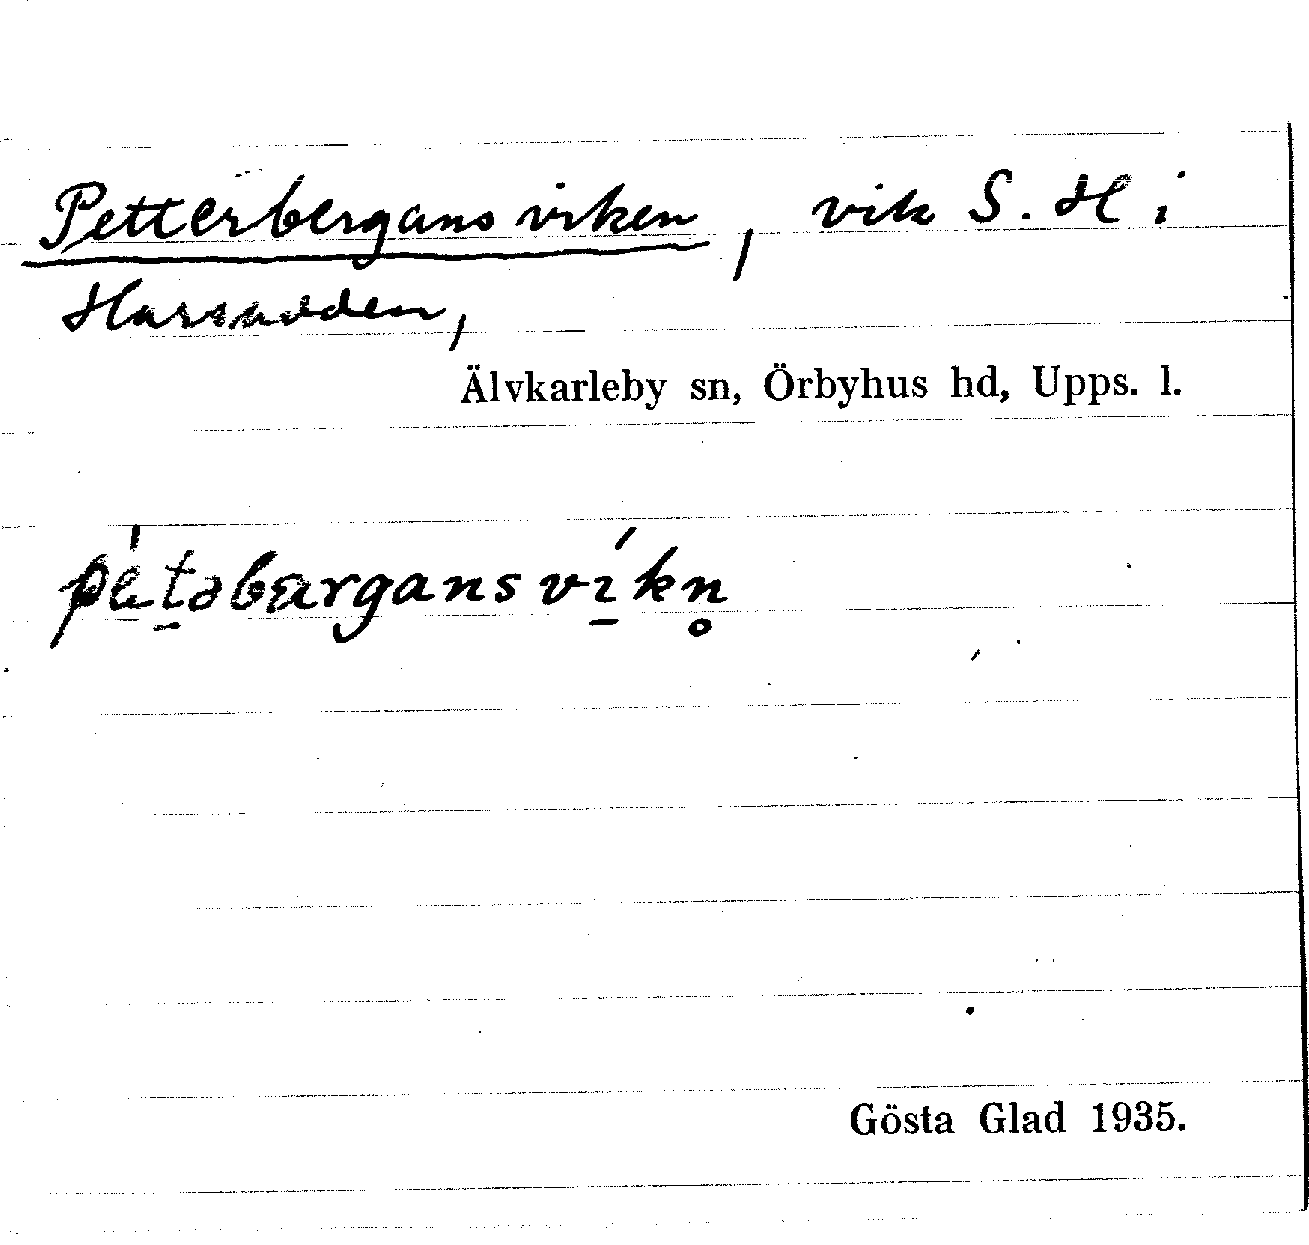 Petterbergansviken, vik S. H i
Harsudden,
Älvkarleby sn, Örbyhus hd, Upps. l.
pètəbærgansvíkn̥
Gösta Glad 1935.